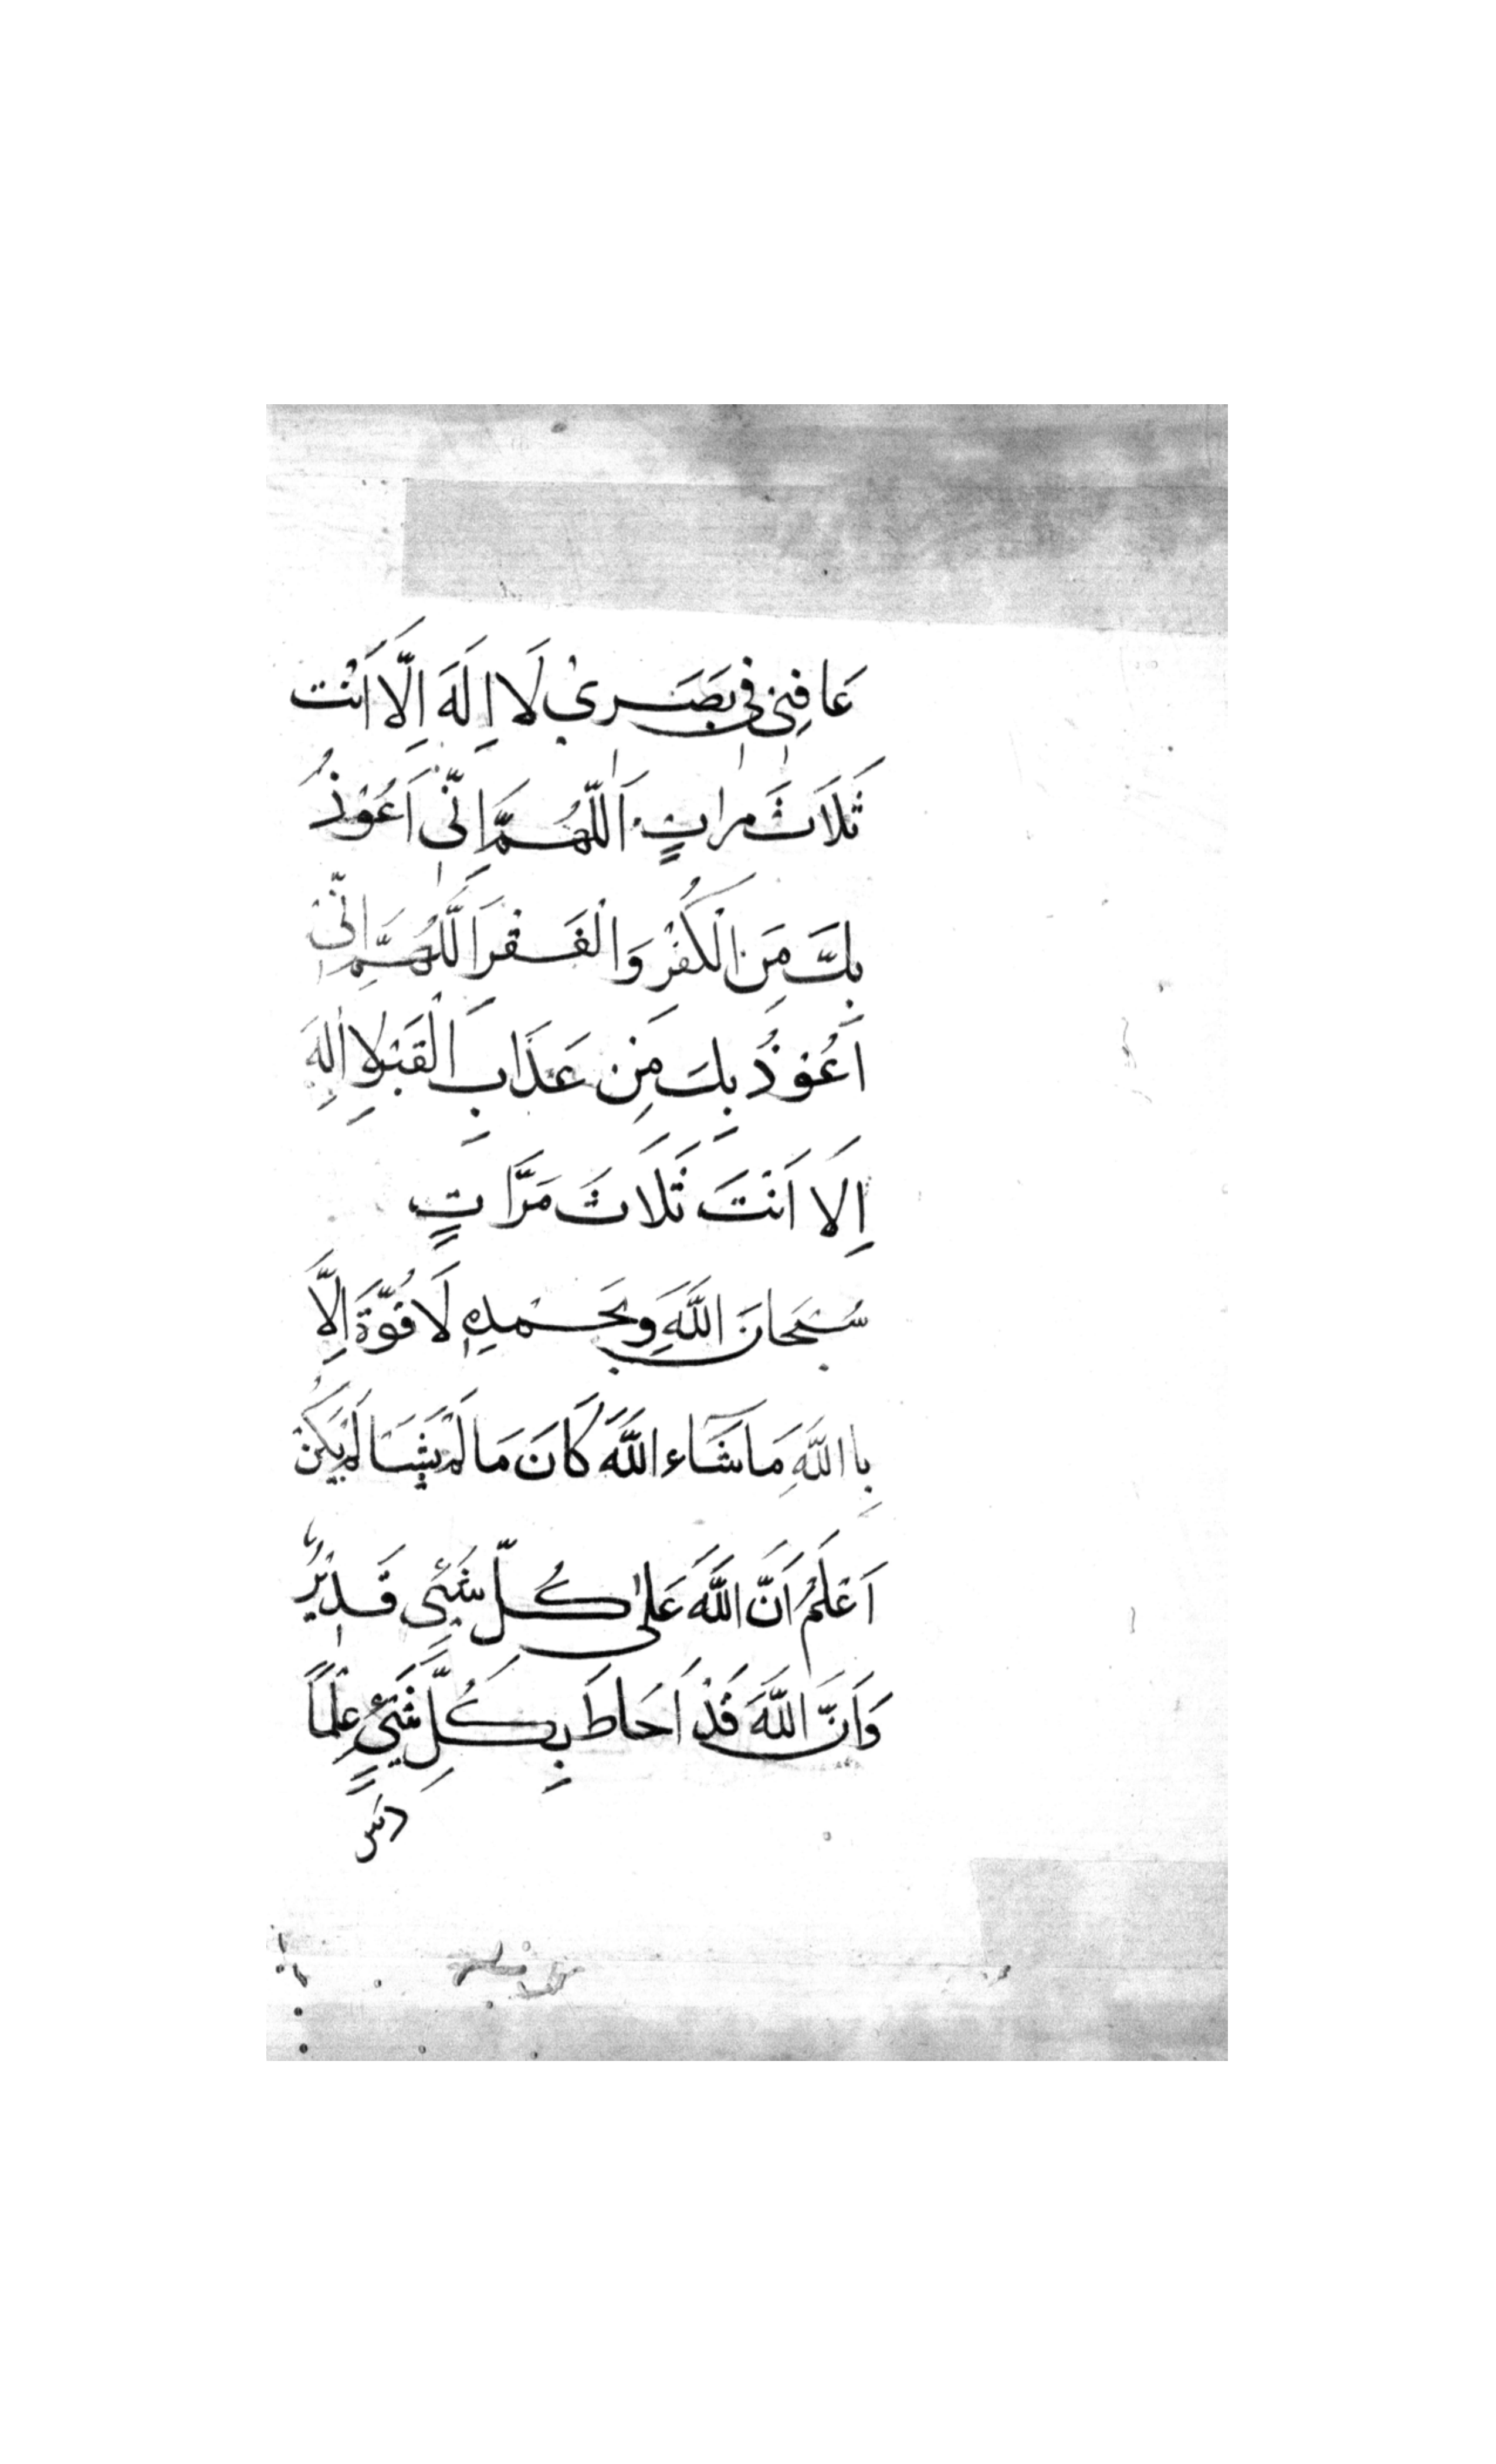 عَافِنِي فِي بَصَرِيْ لَا اِلَهَ اِلَّا اَنْتَ
ثَلَاثَ مراتٍ اَللّهُمَّ اِنِّى اَعُوْذُ
بِكَ مَنِ الْكُفْرِ وَالْفَقْرِ اَللَّهُمَّ اِنِّيْ
اَعُوْذُ بِكَ مِنْ عَذَابِ الْقَبْلِا اِلَهَ
اِلَا اَنْتَ ثَلَاثَ مَرَّاتٍ
سُبْحَانَ اللَّهِ وَبِحَمْدِهِ لَا قُوَّةَ اِلَّا
بِا اللَّهِ مَا شَآء اللَّهُ كَانَ مَا لَمْ يَشَا لَمْ يَكُنْ
اَعْلَمُ اَنَّ اللَّهَ عَلٰى كُلِّ شَيْئٍ قَدِيْرٌ
وَاَنَّ اللَّهَ قَدْ اَحَاطَ بِكُلِّ شَيْئٍ عِلْمًا